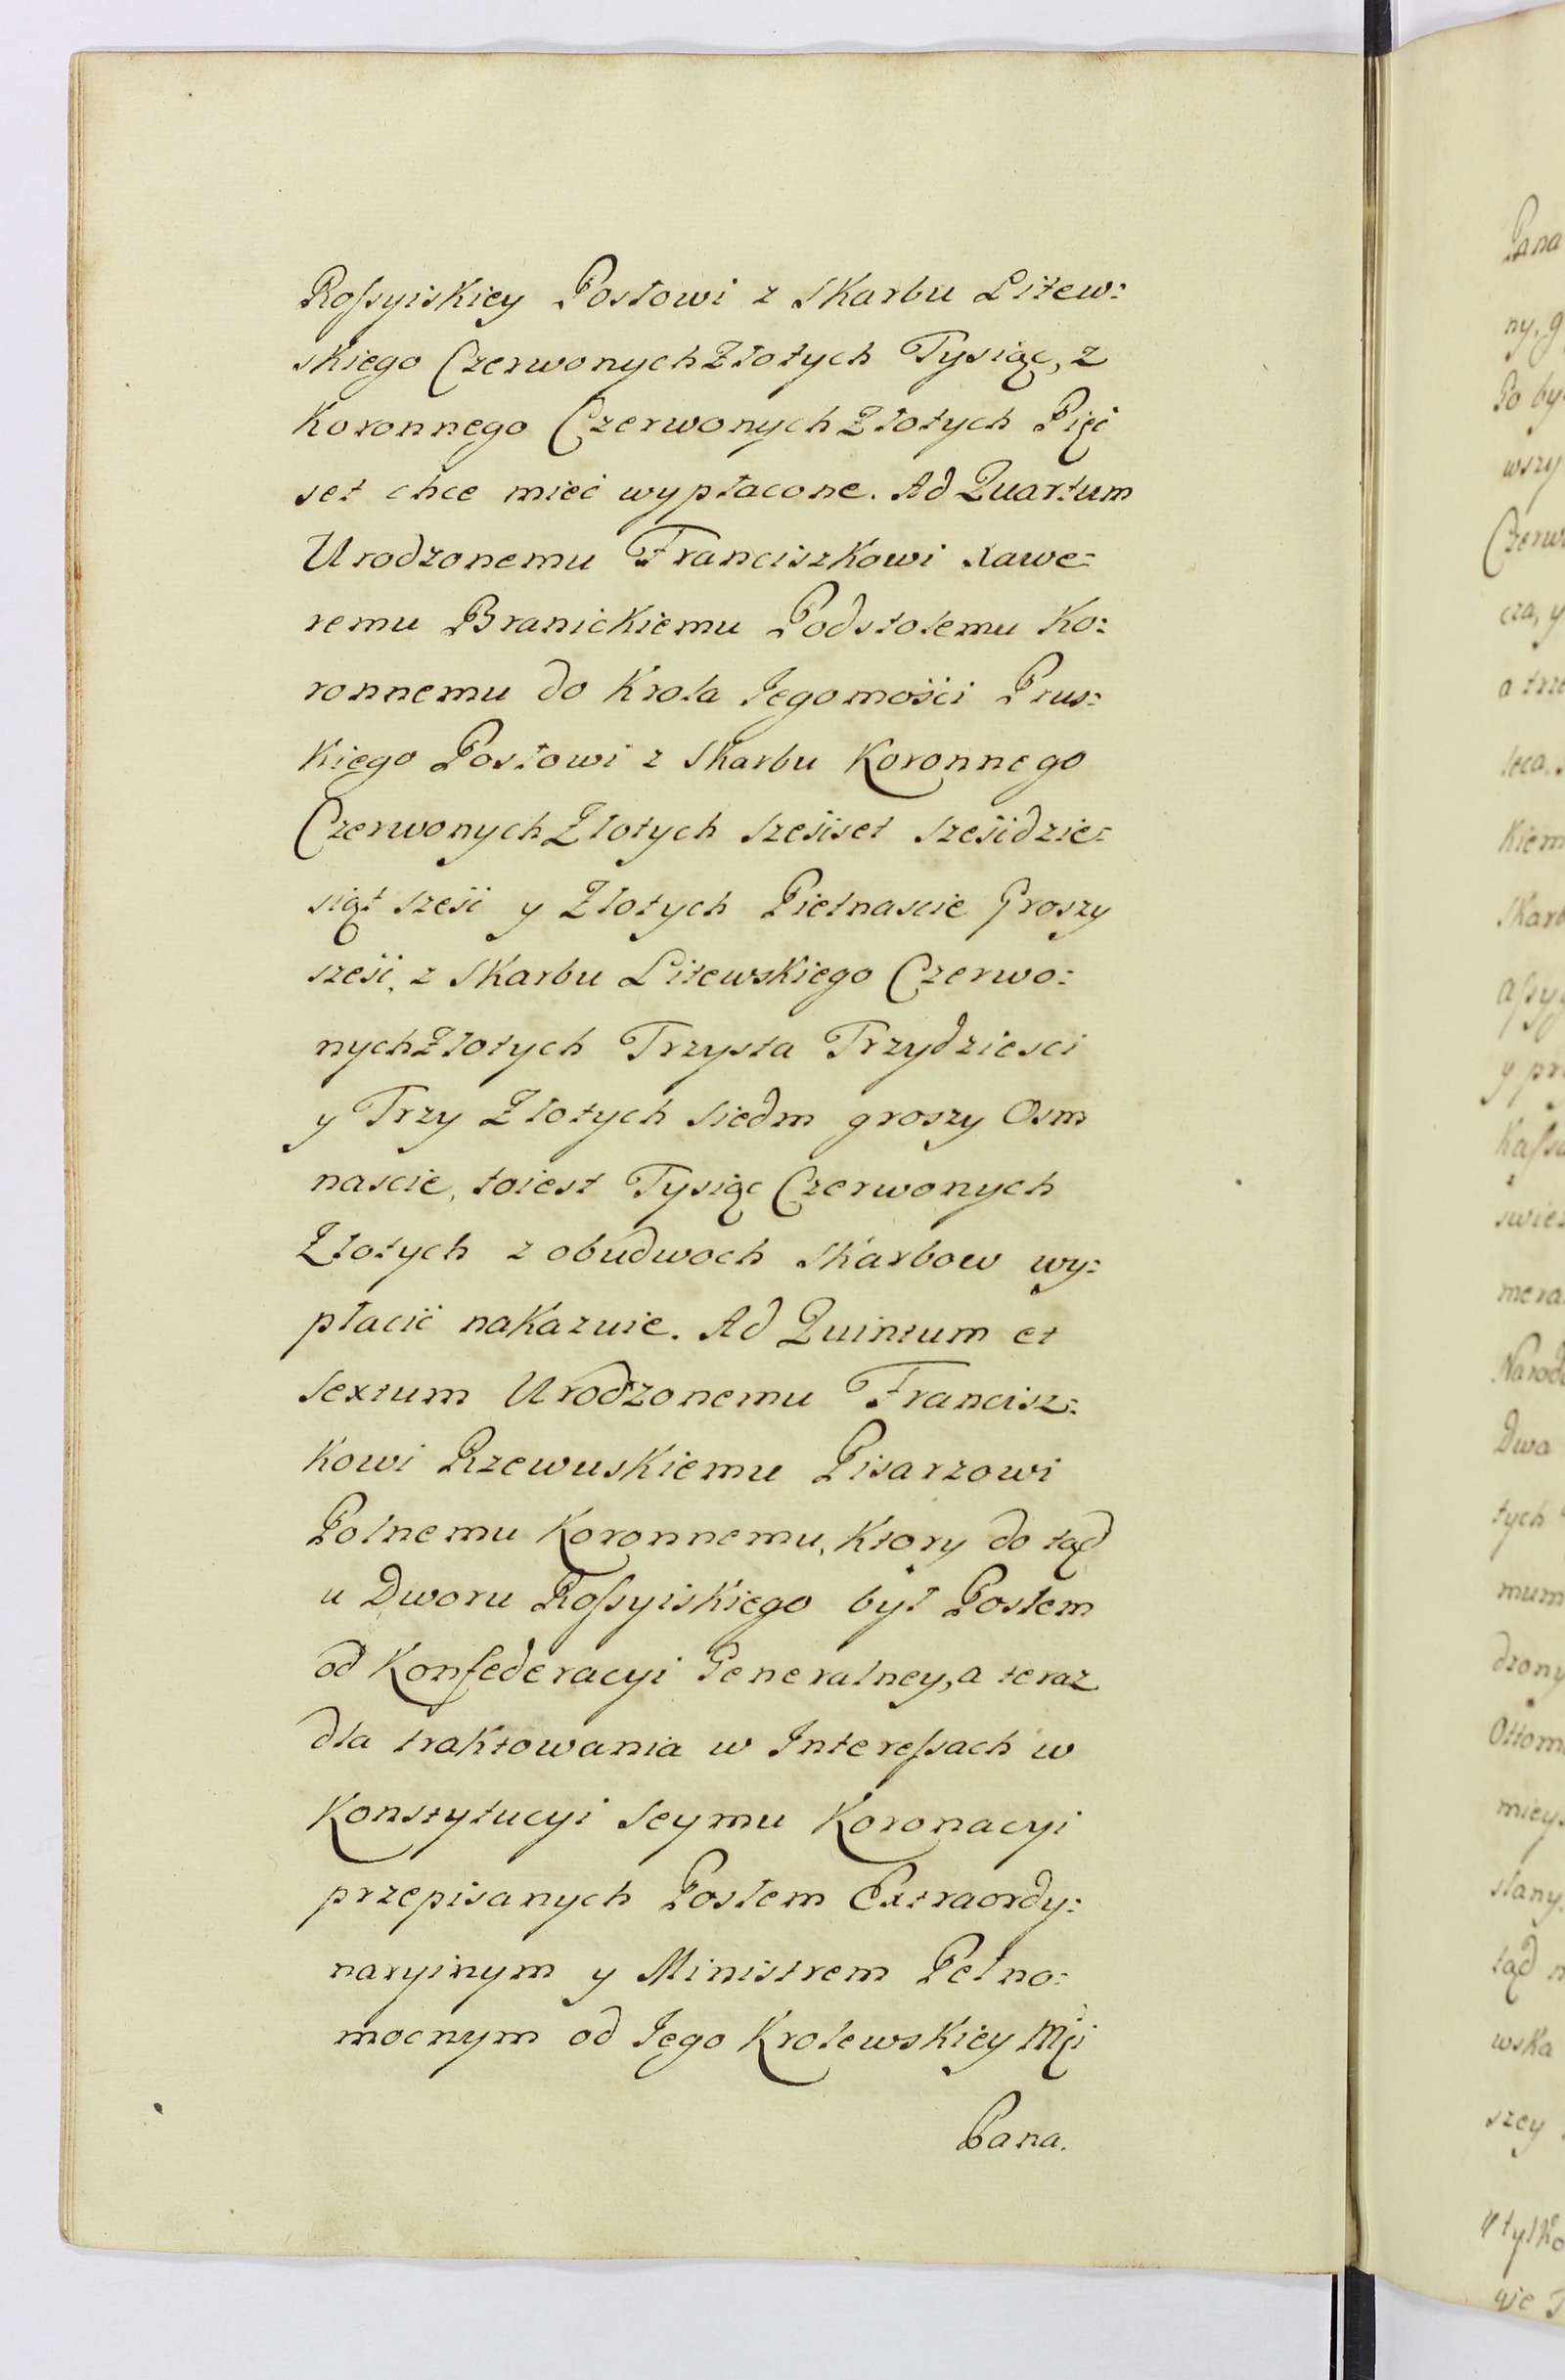 Roſsyiskiey Posłowi z Skarbu Litew:
skiego Czerwonych Złotych Tysiąc, z
Koronnego Czerwonych Złotych Pięć
set chce mieć wypłacone. Ad Quartum
Urodzonemu Franciszkowi Xawe:
remu Branickiemu Podstolemu Ko:
ronnemu do Krola Jegomości Prus:
kiego Posłowi z Skarbu Koronnego
Czerwonych Złotych sześset sześdzie:
siąt sześć y Złotych Pietnascie Groszy
sześć, z Skarbu Litewskiego Czerwo:
nych Złotych Trzysta Trzydziesci
y Trzy Złotych siedm groszy Osm
nascie, toiest Tysiąc Czerwonych
Złotych z obudwoch Skarbow wy:
płacić nakazuie. Ad Quintum et
Sextum Urodzonemu Francisz:
kowi Rzewuskiemu Pisarzowi
Polnemu Koronnemu, ktory do tąd
u Dworu Roſsyiskiego był Posłem
od Konfederacyi Generalney, a teraz
dla traktowania w Intereſsach w
Konstytucyi Seymu Koronacyi
przepisanych Posłem Extraordy:
naryinym y Ministrem Pełno:
mocnym od Jego Krolewskiey Mći
Pana.
Pana
ny, g
Po by
wszy
Czerw
cza, y
a trze
leca.
kiem
Skarb
aſsy
y pr
Kaſs
swie
mera
Narod
Dwa
tych
mum
dzony
Ottom
miey
słany
tąd n
wska
szey
tylko